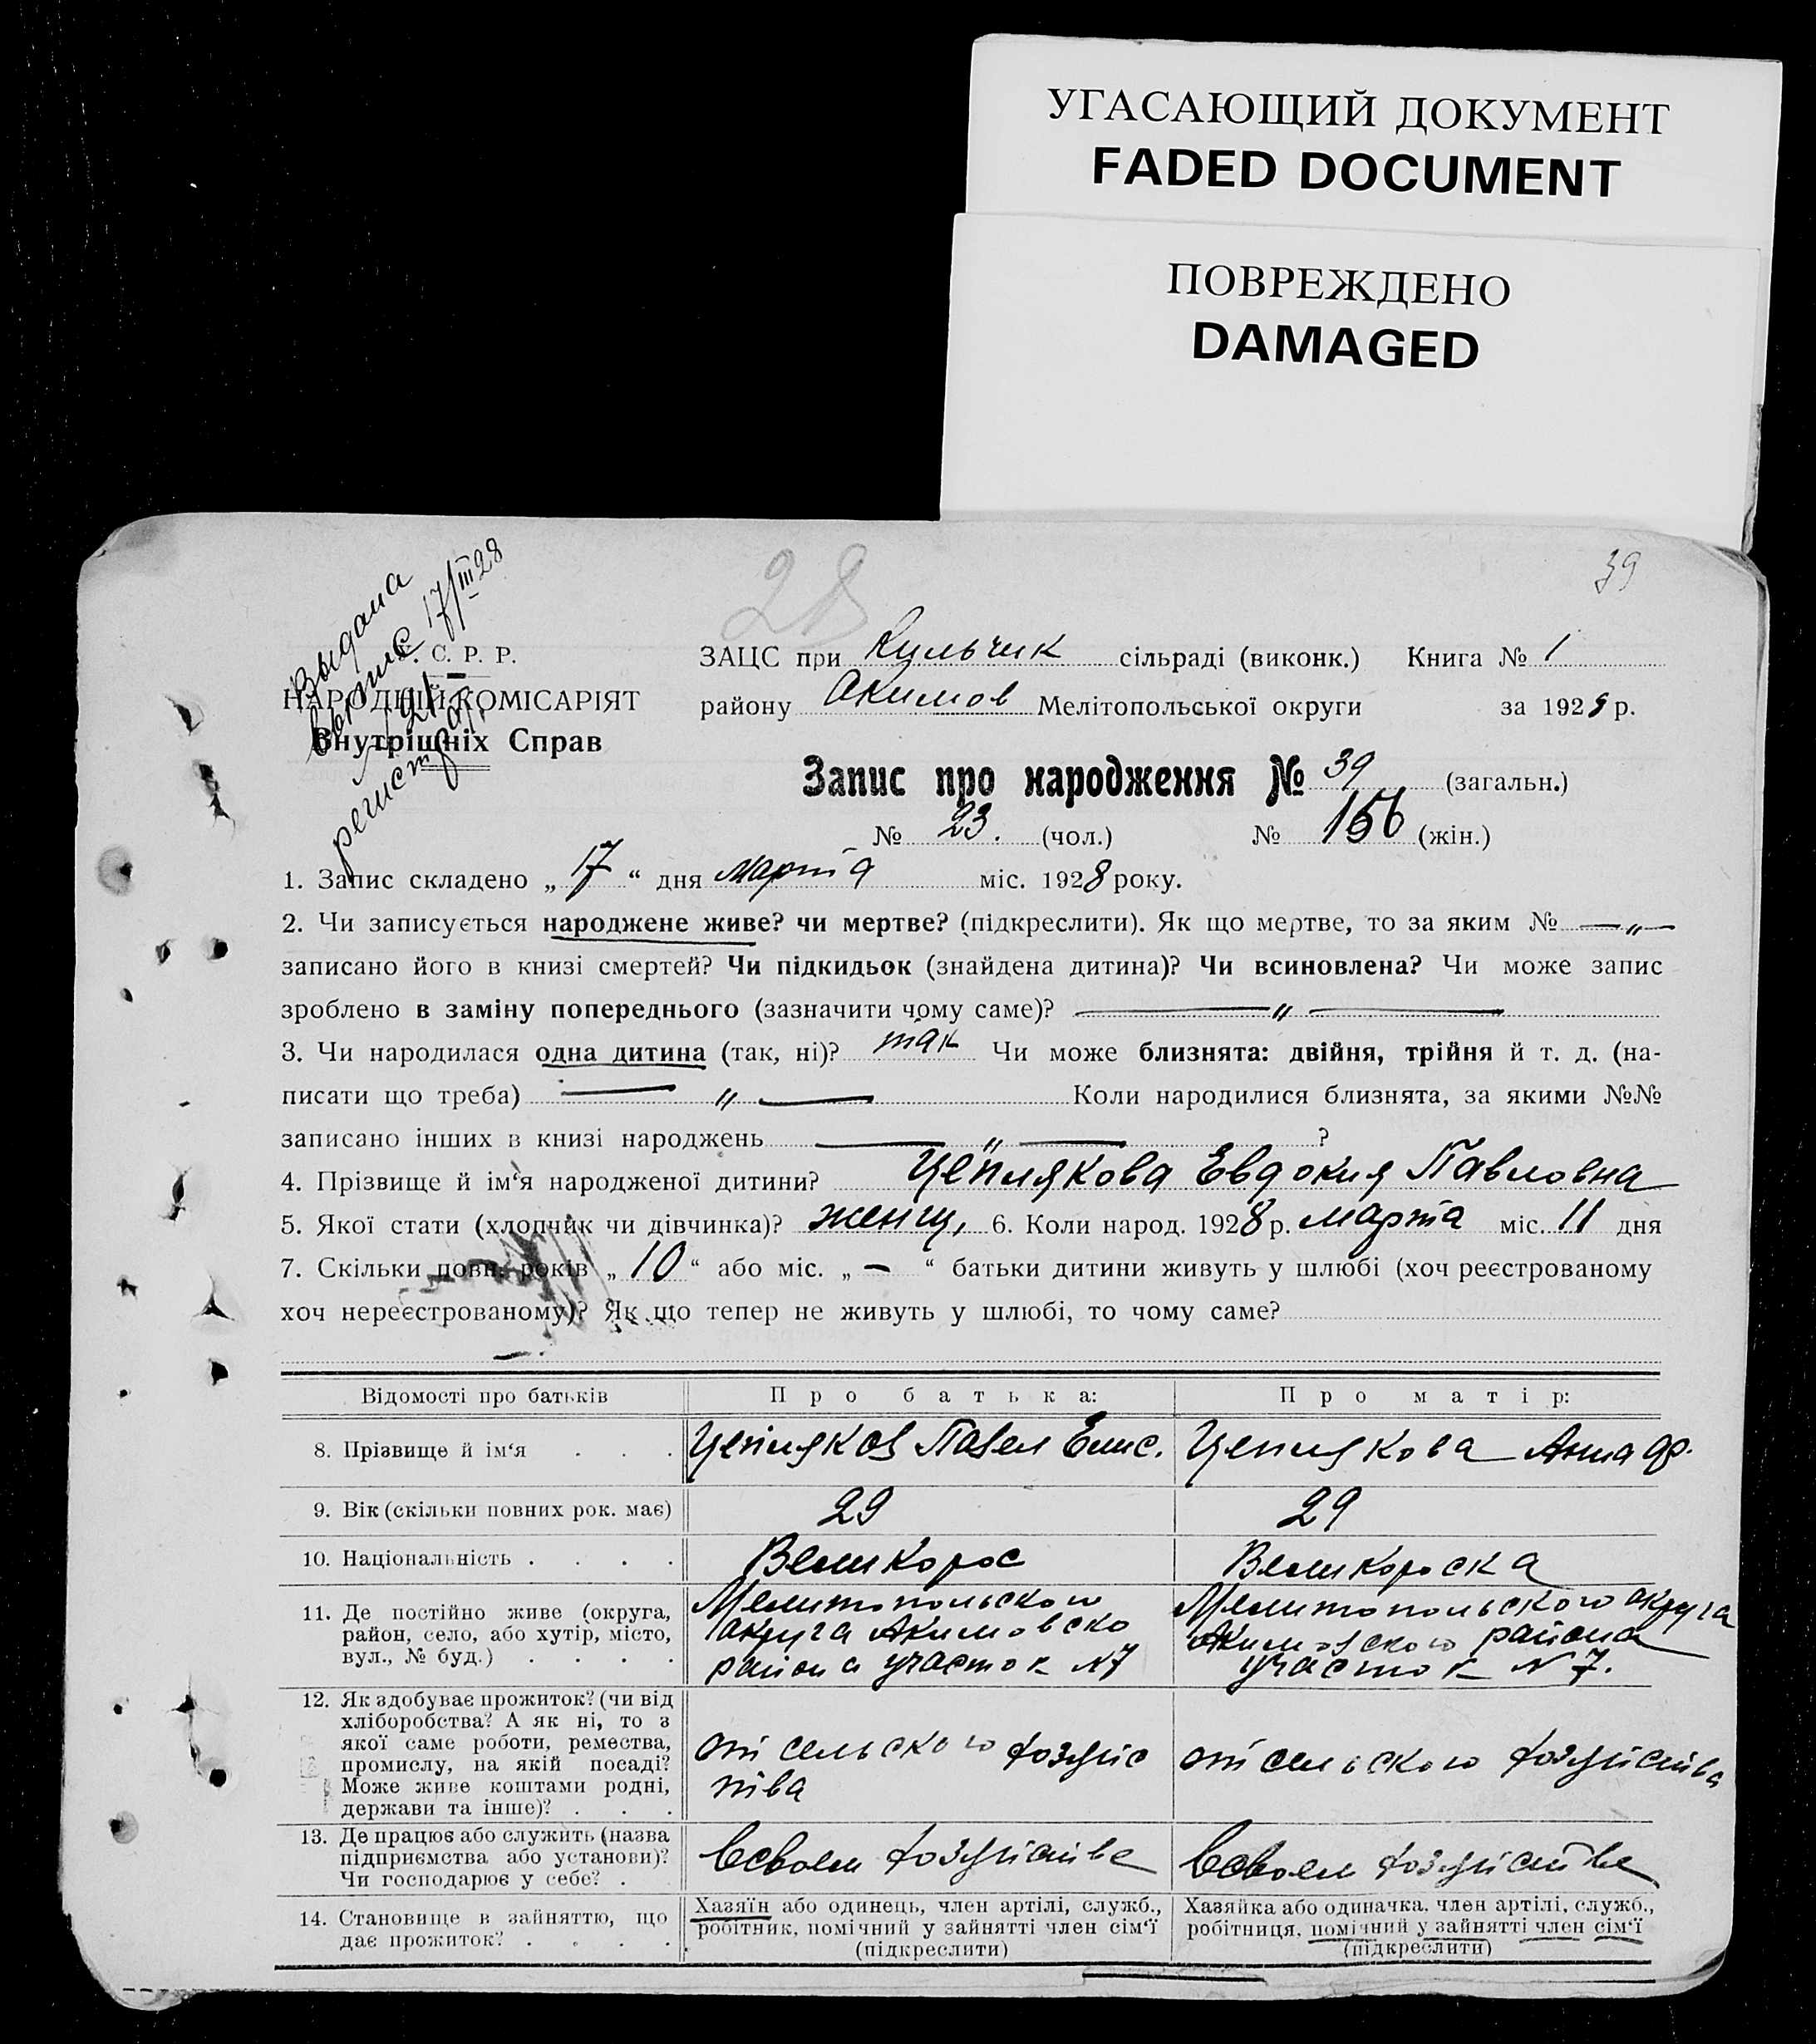 УГАСАЮЩИЙ ДОКУМЕНТ
FADED DOCUMENT
ПОВРЕЖДЕНО
DAMAGED
39
28
Выдана
выпис 17/III 28
регистрац.
. С. Р. Р.
НАРОДНІЙ КОМІСАРІЯТ
Внутрішніх Справ
ЗАЦС при Кульчик сільраді (виконк.) Книга № 1
району Акимов Мелітопольської округи за 1928 р.
Запис про народження № 39 (загальн.)
№ 23. (чол.) № 156 (жін.)
1. Запис складено „ 17 “ дня марта міс. 1928 року.
2. Чи записується народжене живе? чи мертве? (підкреслити). Як що мертве, то за яким № — „ —
записано його в книзі смертей? Чи підкидьок (знайдена дитина)? Чи всиновлена? Чи може запис
зроблено в заміну попереднього (зазначити чому саме)? — „ —
3. Чи народилася одна дитина (так, ні)? так Чи може близнята: двійня, трійня й т. д. (на-
писати що треба) — „ — Коли народилися близнята, за якими №№
записано інших в книзі народжень — „ — ?
4. Прізвище й ім‘я народженої дитини? Цеплякова Евдокия Павловна
5. Якої стати (хлопчик чи дівчинка)? женщ. 6. Коли народ. 1928 р. марта міс. 11 дня
7. Скільки повн. років „ 10 “ або міс. „ — “ батьки дитини живуть у шлюбі (хоч реєстрованому
хоч нереєстрованому)? Як що тепер не живуть у шлюбі, то чому саме?
Відомості про батьків Про батька: Про матір:
8. Прізвище й ім‘я . . . Цепляков Павел Елис. Цеплякова Анна Фр.
9. Вік (скільки повних рок. має) 29 29
10. Національність . . . . Великорос Великороска
11. Де постійно живе (округа, район, село, або хутір, місто, вул., № буд.) . . . .
Мелитопольского
округа Акимовско
района участок N 7
Мелитопольского округа
Акимовского района
участок N 7.
12. Як здобуває прожиток? (чи від
хліборобства? А як ні, то з
якої саме роботи, ремества,
промислу, на якій посаді?
Може живе коштами родні,
держави та інше)? . . .
от сельского хозяйс
тва
от сельского хозяйства
13. Де працює або служить (назва
підприємства або установи)?
Чи господарює у себе? .
всвоем хозяйстве
всвоем хозяйстве
14. Становище в зайняттю, що
дає прожиток? . . . .
Хазяїн або одинець, член артілі, служб.,
робітник, помічний у зайнятті член сім‘ї
(підкреслити)
Хазяйка або одиначка, член артілі, служб.,
робітниця, помічний у зайнятті член сім‘ї
(підкреслити)